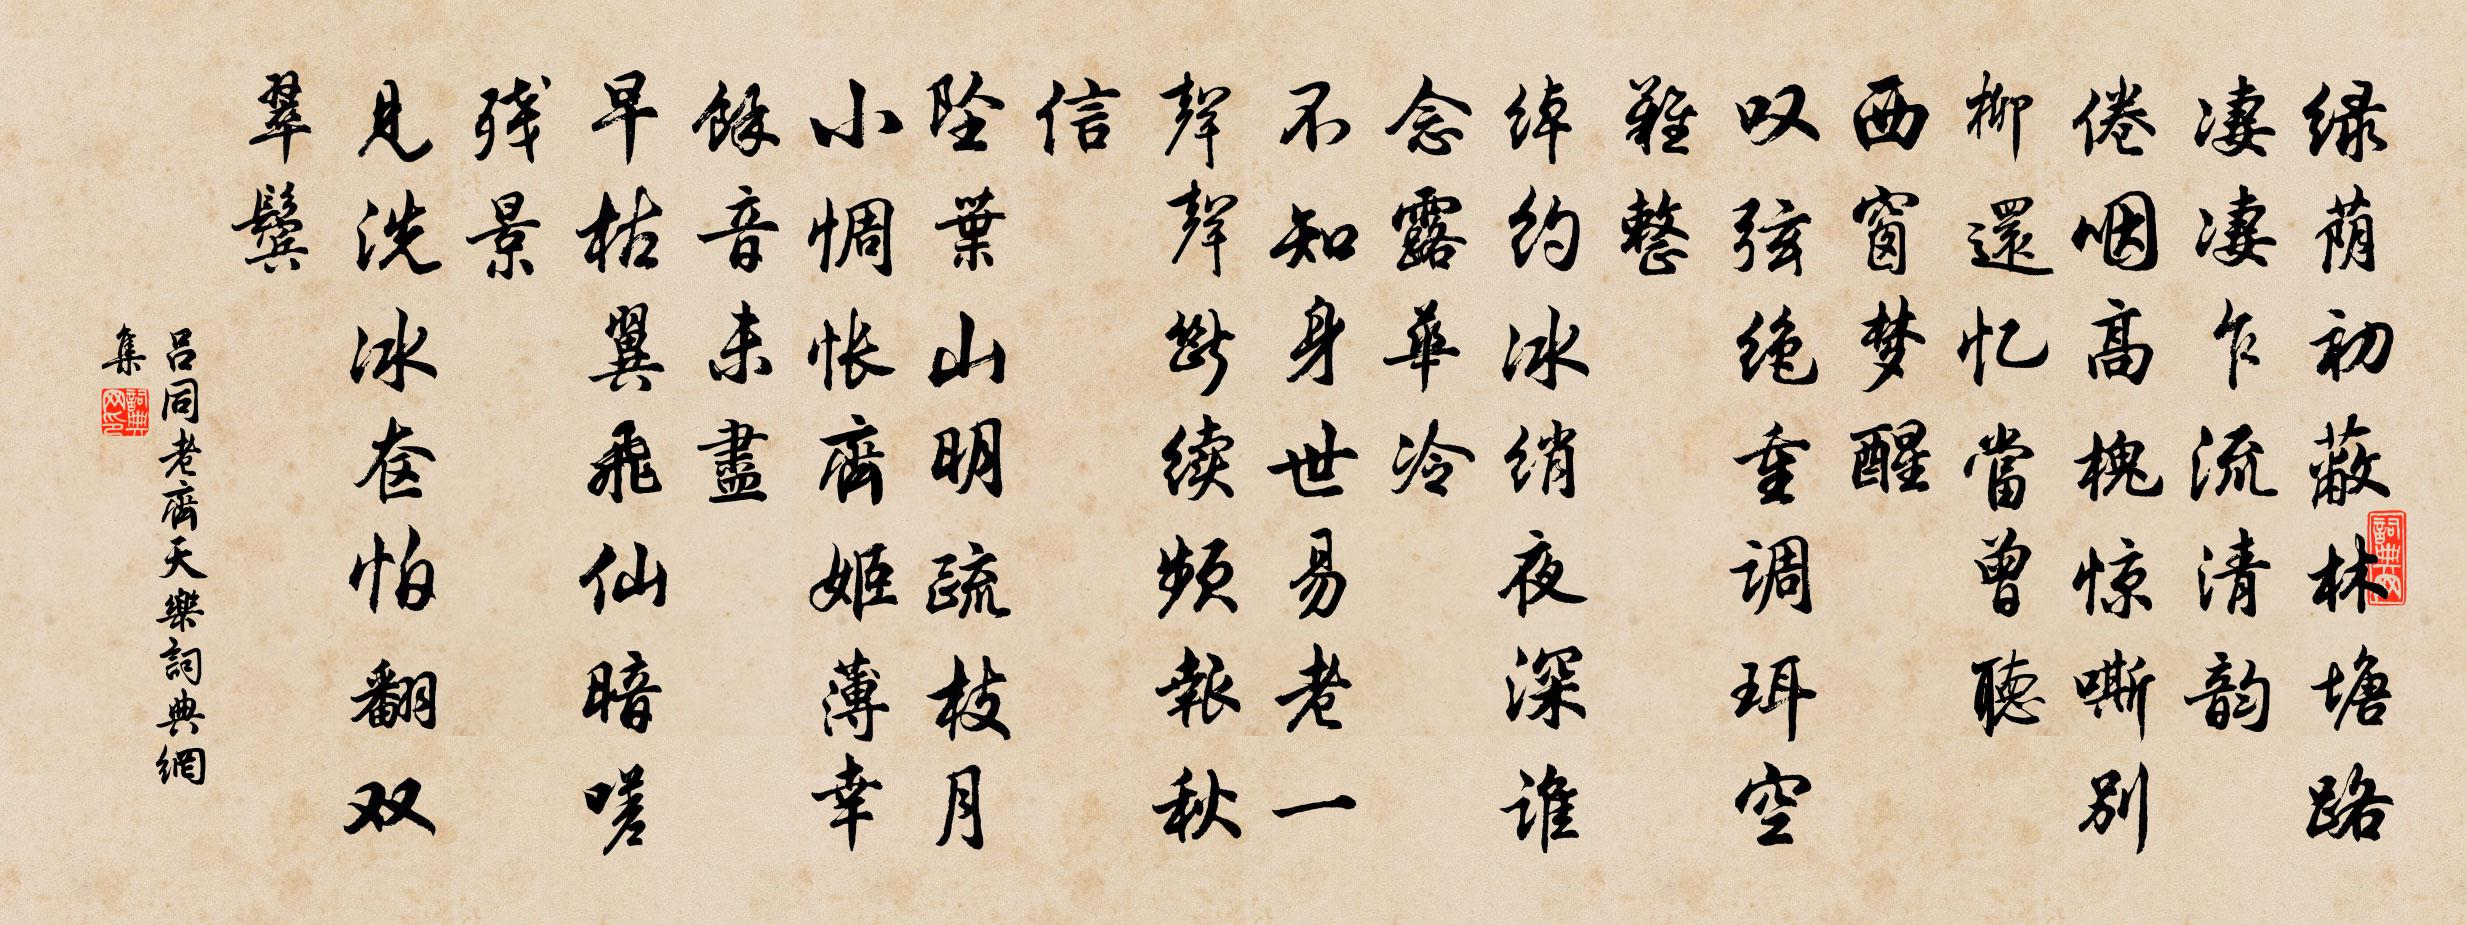 绿荫初蔽林塘路
凄凄乍流清韵
倦咽高槐惊嘶别
柳還忆當曾聽
西窗梦醒
叹弦绝重调珥空
難整
绰约冰绡夜深谁
念露華冷
不知身世易老一
聲聲斷续频報秋
信
坠葉山明疏枝月
小惆怅齊姬薄幸
餘音未盡
早枯翼飛仙暗嗟
残景
見洗冰奁怕翻双
翠鬓
吕同老齊天樂詞典網
集
詞典网印
詞典网